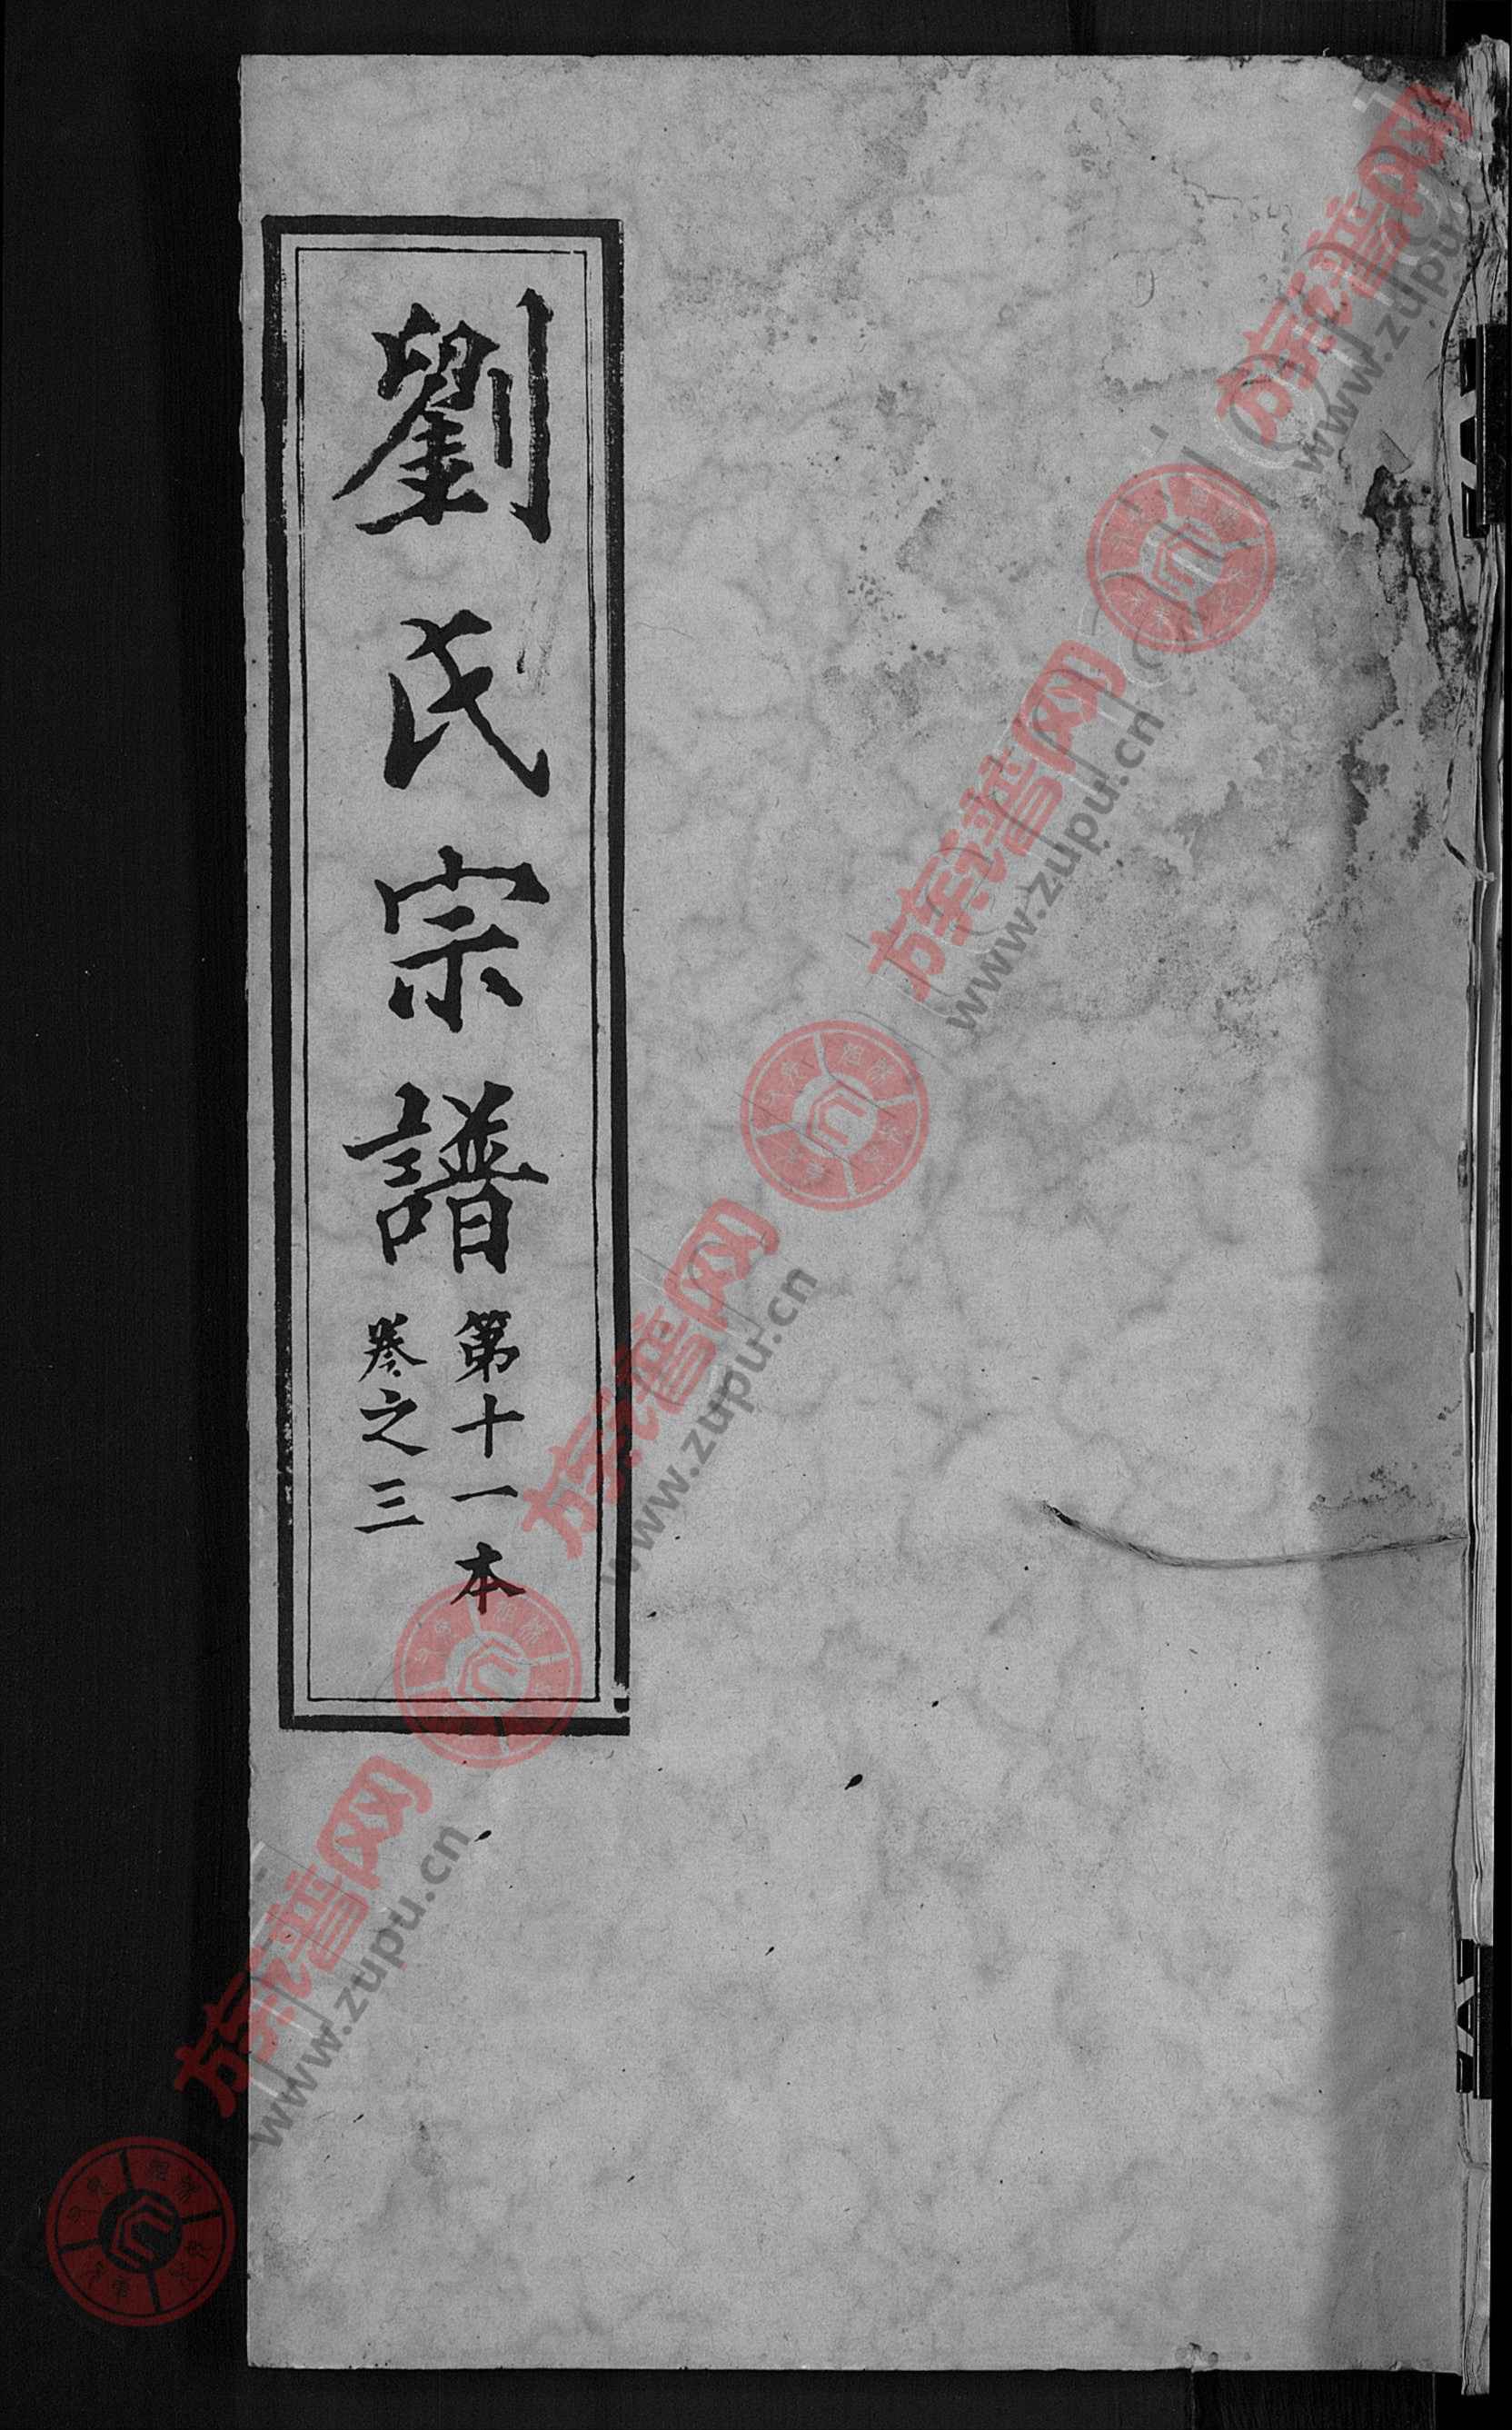 劉氏宗譜
第十一本
卷之三
族譜网
www.zupu.cn
族譜网
www.zupu.cn
族譜网
www.zupu.cn
族譜网
www.zupu.cn